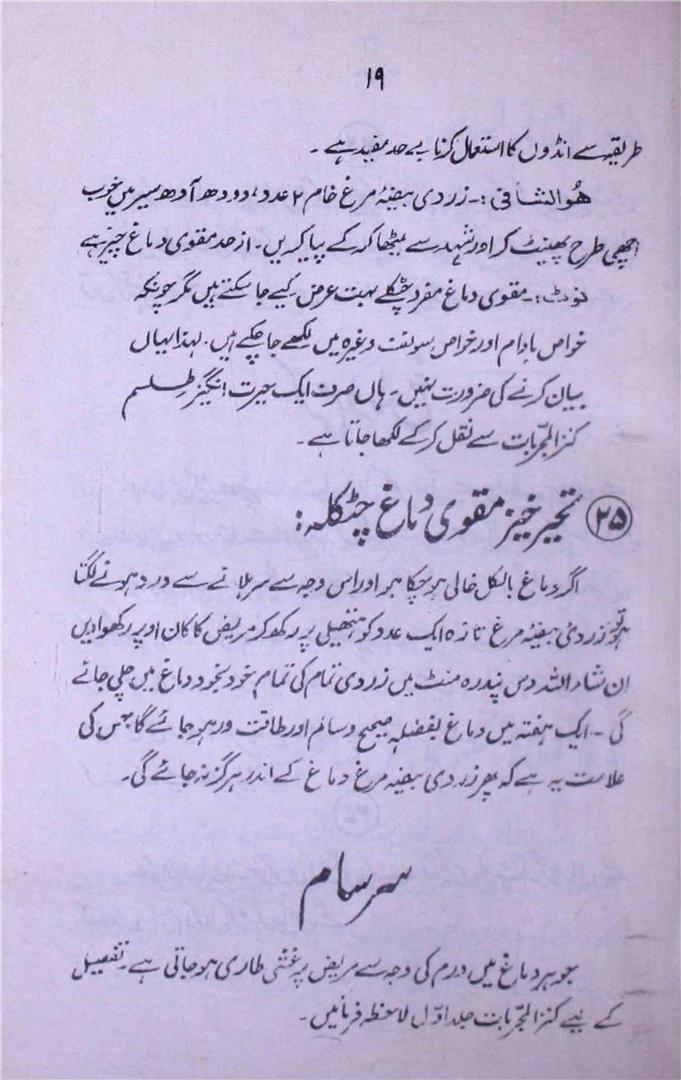 ۱۹
طریقہ سے انڈوں کا استعمال کرنا بے حد مفید ہے ۔
ھُوالشافی :۔ زردی بیضۂ مرغ خام ۲ عدد، دودھ آدھ سیر میں خوب
اچھی طرح پھینٹ کر اور شہد سے میٹھا کر کے پیا کریں۔ از حد مقوی دماغ چیز ہے
نوٹ :۔ مقوی دماغ مفرد چٹکلے بہت عرض کیے جا سکتے ہیں مگر چونکہ
خواص بادام اور خواص سونف وغیرہ میں لکھے جا چکے ہیں۔ لہذا یہاں
بیان کرنے کی ضرورت نہیں۔ ہاں صرف ایک حیرت انگیز طلسم
کنز المجربات سے نقل کر کے لکھا جاتا ہے ۔
۲۵ تحیر خیز مقوی دماغ چٹکلہ :
اگر دماغ بالکل خالی ہو چکا ہو اور اس وجہ سے سر ہلانے سے درد ہونے لگتا
ہو تو زردی بیضۂ مرغ تازہ ایک عدد کو ہتھیلی پر رکھ کر مریض کا کان اوپر رکھوا دیں
ان شاء اللہ دس پندرہ منٹ میں زردی تمام کی تمام خود بخود دماغ میں چلی جائے
گی ۔ ایک ہفتہ میں دماغ بفضلہٖ صحیح و سالم اور طاقت ور ہو جائے گا جس کی
علامت یہ ہے کہ پھر زردی بیضہ مرغ دماغ کے اندر ہرگز نہ جائے گی۔
سرسام
جوہر دماغ میں ورم کی وجہ سے مریض پر غشی طاری ہو جاتی ہے۔ تفصیل
کے لیے کنز المجربات جلد اوّل ملاحظہ فرمائیں۔